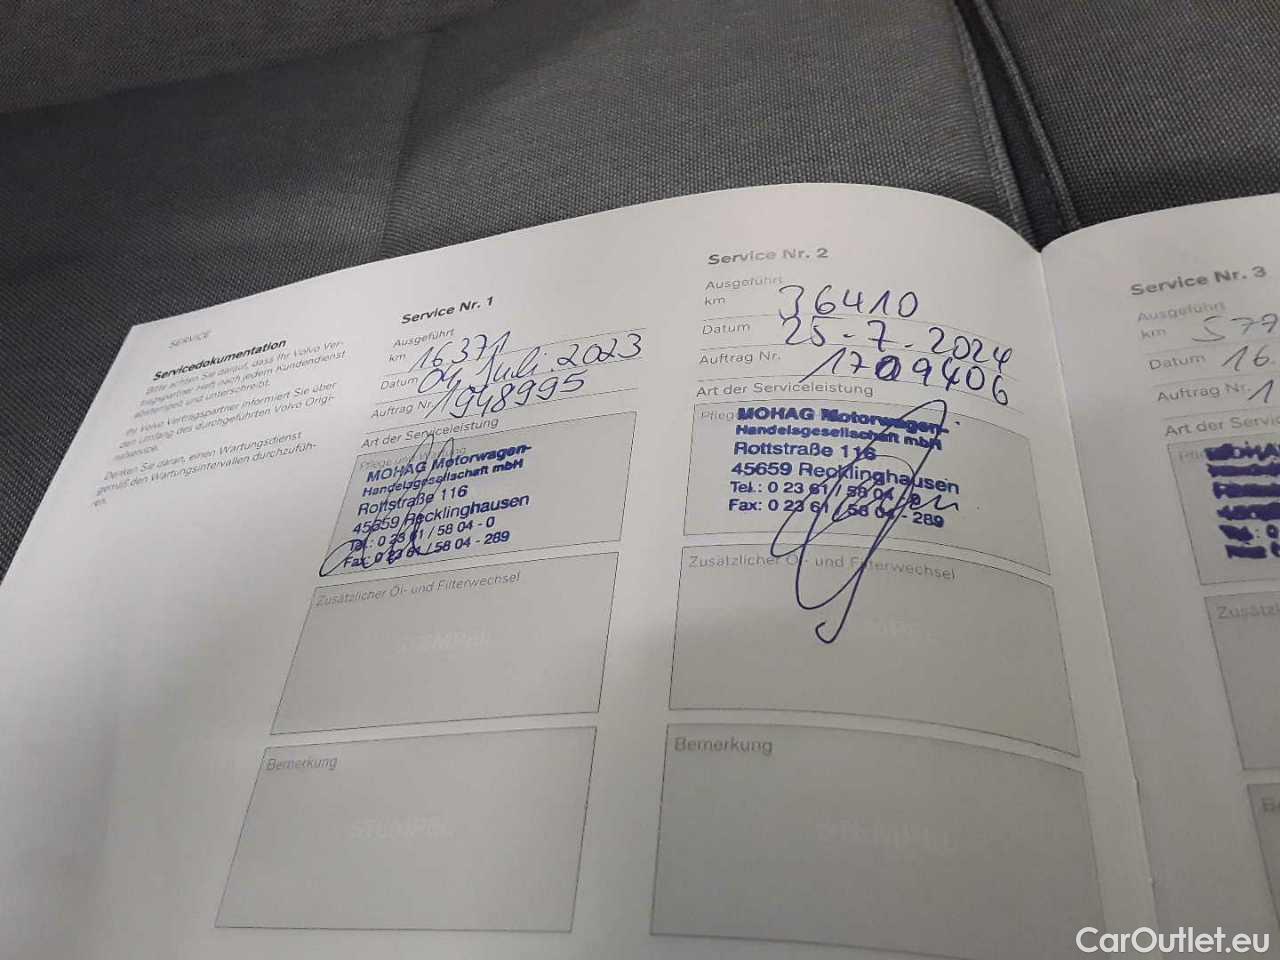 SERVICE
Servicedokumentation
Bitte achten Sie darauf, dass Ihr Volvo Ver-
tragspartner Heft nach jedem Kundendienst
abstempelt und unterschreibt.
Ihr Volvo Vertragspartner informiert Sie über
den Umfang des durchgeführten Volvo Origi-
nalservice.
Denken Sie daran, einen Wartungsdienst
gemäß den Wartungsintervallen durchzufüh-
ren.
Service Nr. 1
Ausgeführt
km 16371
Datum 04. Juli. 2023
Auftrag Nr. 1948995
Art der Serviceleistung
Pflege und Wartung
MOHAG Motorwagen-
Handelsgesellschaft mbH
Rottstraße 116
45659 Recklinghausen
Tel.: 0 23 61 / 58 04 - 0
Fax: 0 23 61 / 58 04 - 289
Zusätzlicher Öl- und Filterwechsel
STEMPEL
Bemerkung
STEMPEL
Service Nr. 2
Ausgeführt
km 36410
Datum 25-7. 2024
Auftrag Nr. 1709406
Art der Serviceleistung
Pfleg
MOHAG Motorwagen-
Handelsgesellschaft mbH
Rottstraße 116
45659 Recklinghausen
Tel.: 0 23 61 / 58 04 - 0
Fax: 0 23 61 / 58 04 - 289
Zusätzlicher Öl- und Filterwechsel
STEMPEL
Bemerkung
STEMPEL
Service Nr. 3
Ausgeführt
km 579
Datum 16.
Auftrag Nr. 1
Art der Servic
Zusätzl
CarOutlet.eu